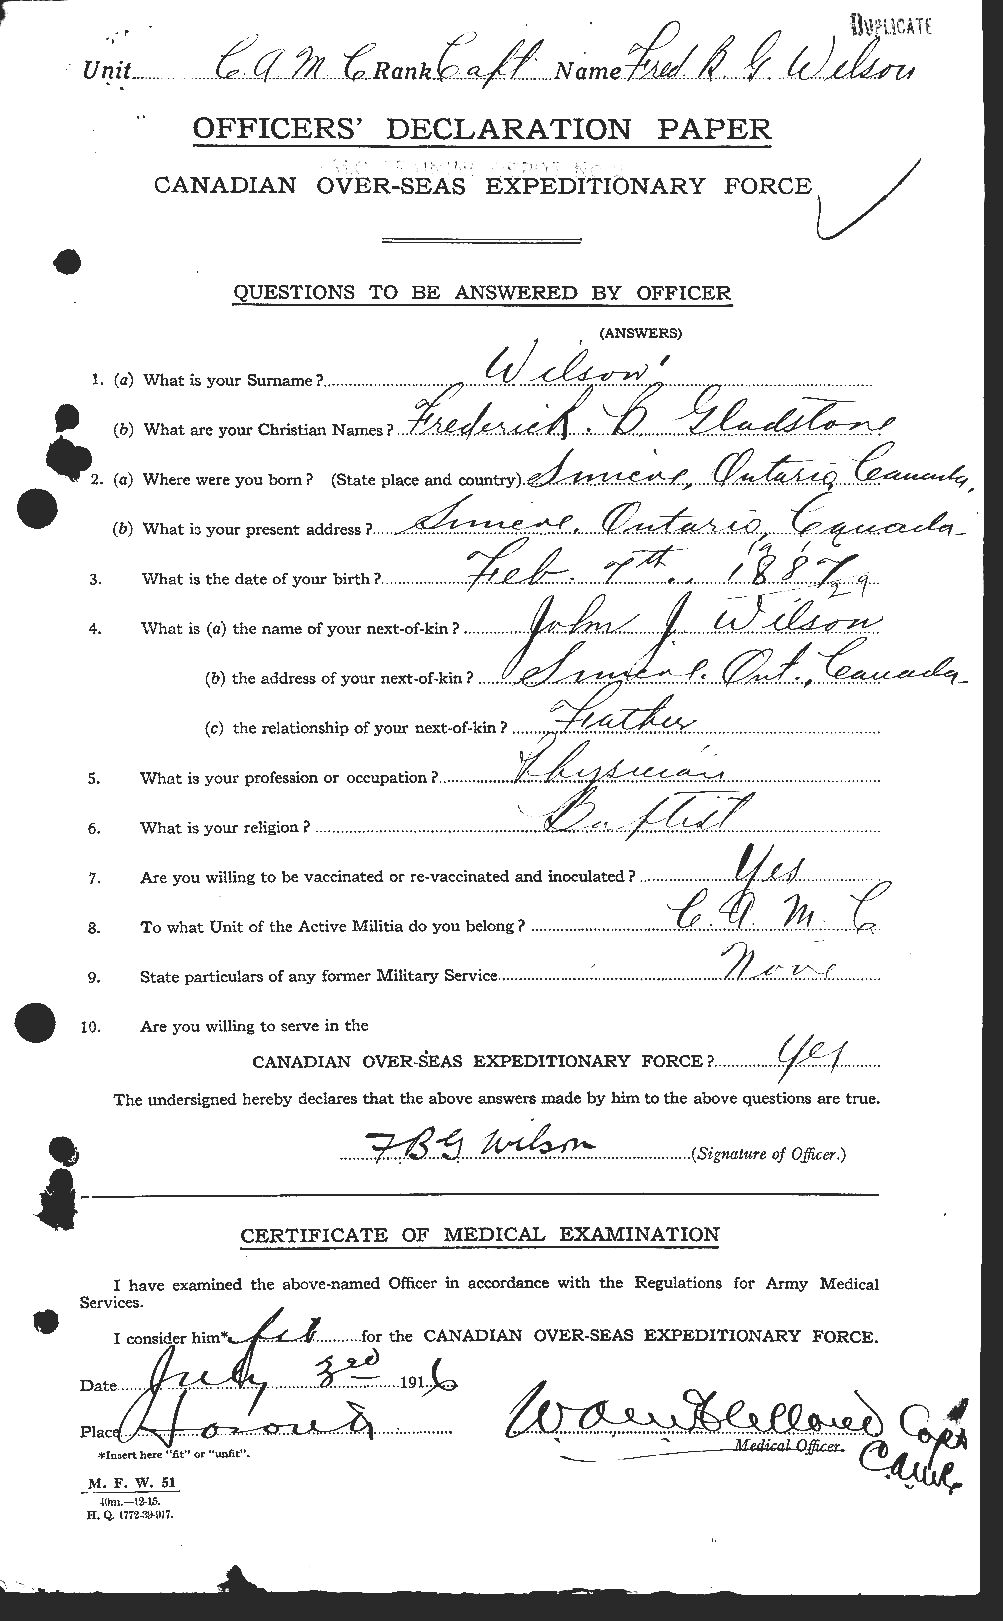 DUPLICATE
Unit C A M C Rank Capt Name Fred B. G. Wilson
OFFICERS' DECLARATION PAPER
CANADIAN OVER-SEAS EXPEDITIONARY FORCE
QUESTIONS TO BE ANSWERED BY OFFICER
(ANSWERS)
1. (a) What is your Surname? Wilson
(b) What are your Christian Names? Frederick. B. Gladstone
2. (a) Where were you born? (State place and country) Simcoe, Ontario, Canada,
(b) What is your present address? Simcoe. Ontario, Canada
3. What is the date of your birth? Feb. 7th., 1887
4. What is (a) the name of your next-of-kin? John J. Wilson
(b) the address of your next-of-kin? Simcoe. Ont., Canada
(c) the relationship of your next-of-kin? Father
5. What is your profession or occupation? Physician
6. What is your religion? Baptist
7. Are you willing to be vaccinated or re-vaccinated and inoculated? Yes
8. To what Unit of the Active Militia do you belong? C. A. M. C
9. State particulars of any former Military Service. None
10. Are you willing to serve in the
CANADIAN OVER-SEAS EXPEDITIONARY FORCE? Yes
The undersigned hereby declares that the above answers made by him to the above questions are true.
F B G Wilson (Signature of Officer.)
CERTIFICATE OF MEDICAL EXAMINATION
I have examined the above-named Officer in accordance with the Regulations for Army Medical
Services.
I consider him* fit for the CANADIAN OVER-SEAS EXPEDITIONARY FORCE.
Date July 3rd 1916
Place Toronto
Capt
Medical Officer.
CAMC
*Insert here "fit" or "unfit".
M. F. W. 51
40m.—12-15.
H. Q. 1772-39-917.